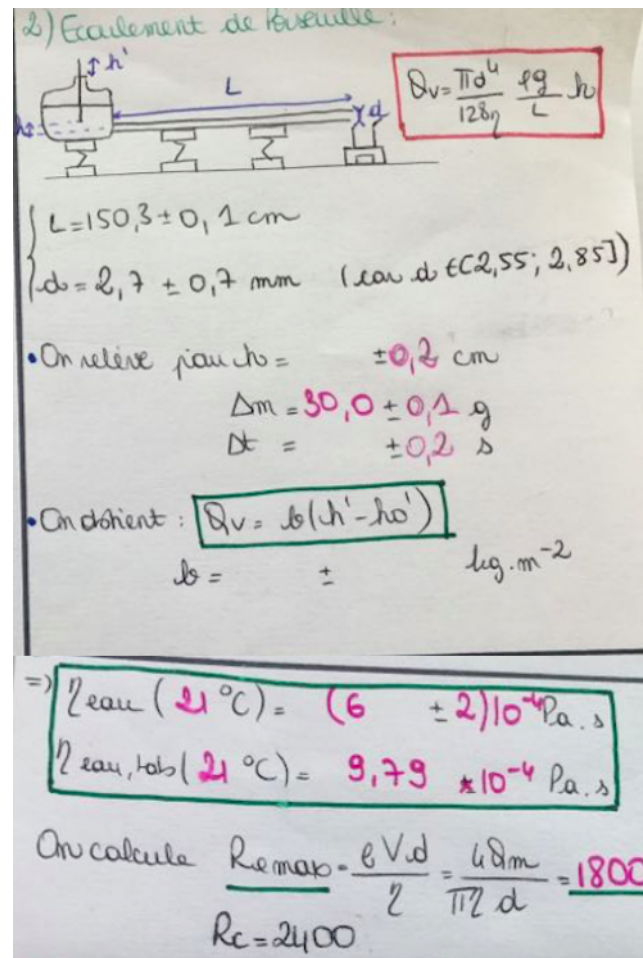 2) Ecoulement de Poiseuille:
h'
L
d
h
Qv = πd⁴/128η ρg/L h
L = 150,3 ± 0,1 cm
d = 2,7 ± 0,7 mm (car d ∈ [2,55; 2,85])
• On relève pour h = ±0,2 cm
Δm = 30,0 ± 0,1 g
Δt = ±0,2 s
• On obtient : Qv = b(h'-ho')
b = ± kg.m⁻²
=> η eau (21 °C) = (6 ± 2)10⁻⁴ Pa.s
η eau, tab (21 °C) = 9,79 *10⁻⁴ Pa.s
On calcule Remax = ρV.d/η = 4Qm/πη d = 1800
Rc = 2400